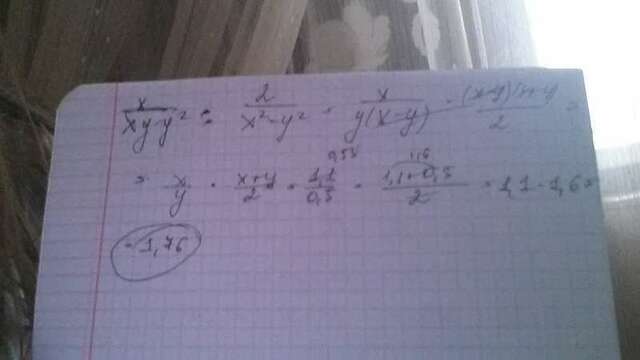 x/(xy-y²) : 2/(x²-y²) = x/(y(x-y)) · (x-y)(x+y)/2 =
= x/y · (x+y)/2 = 1,1/0,5 · (1,1+0,5)/2 = 1,1 · 1,6 =
= 1,76